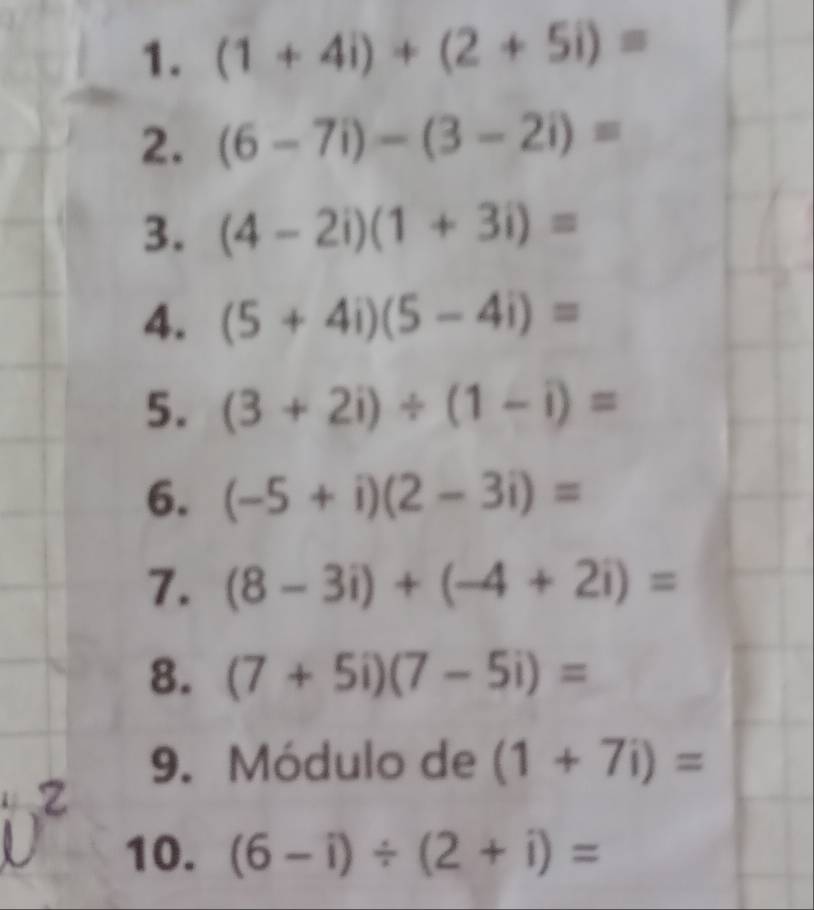 1. (1 + 4i) + (2 + 5i) =
2. (6 - 7i) - (3 - 2i) =
3. (4 - 2i)(1 + 3i) =
4. (5 + 4i)(5 - 4i) =
5. (3 + 2i) ÷ (1 - i) =
6. (-5 + i)(2 - 3i) =
7. (8 - 3i) + (-4 + 2i) =
8. (7 + 5i)(7 - 5i) =
9. Módulo de (1 + 7i) =
i²
10. (6 - i) ÷ (2 + i) =